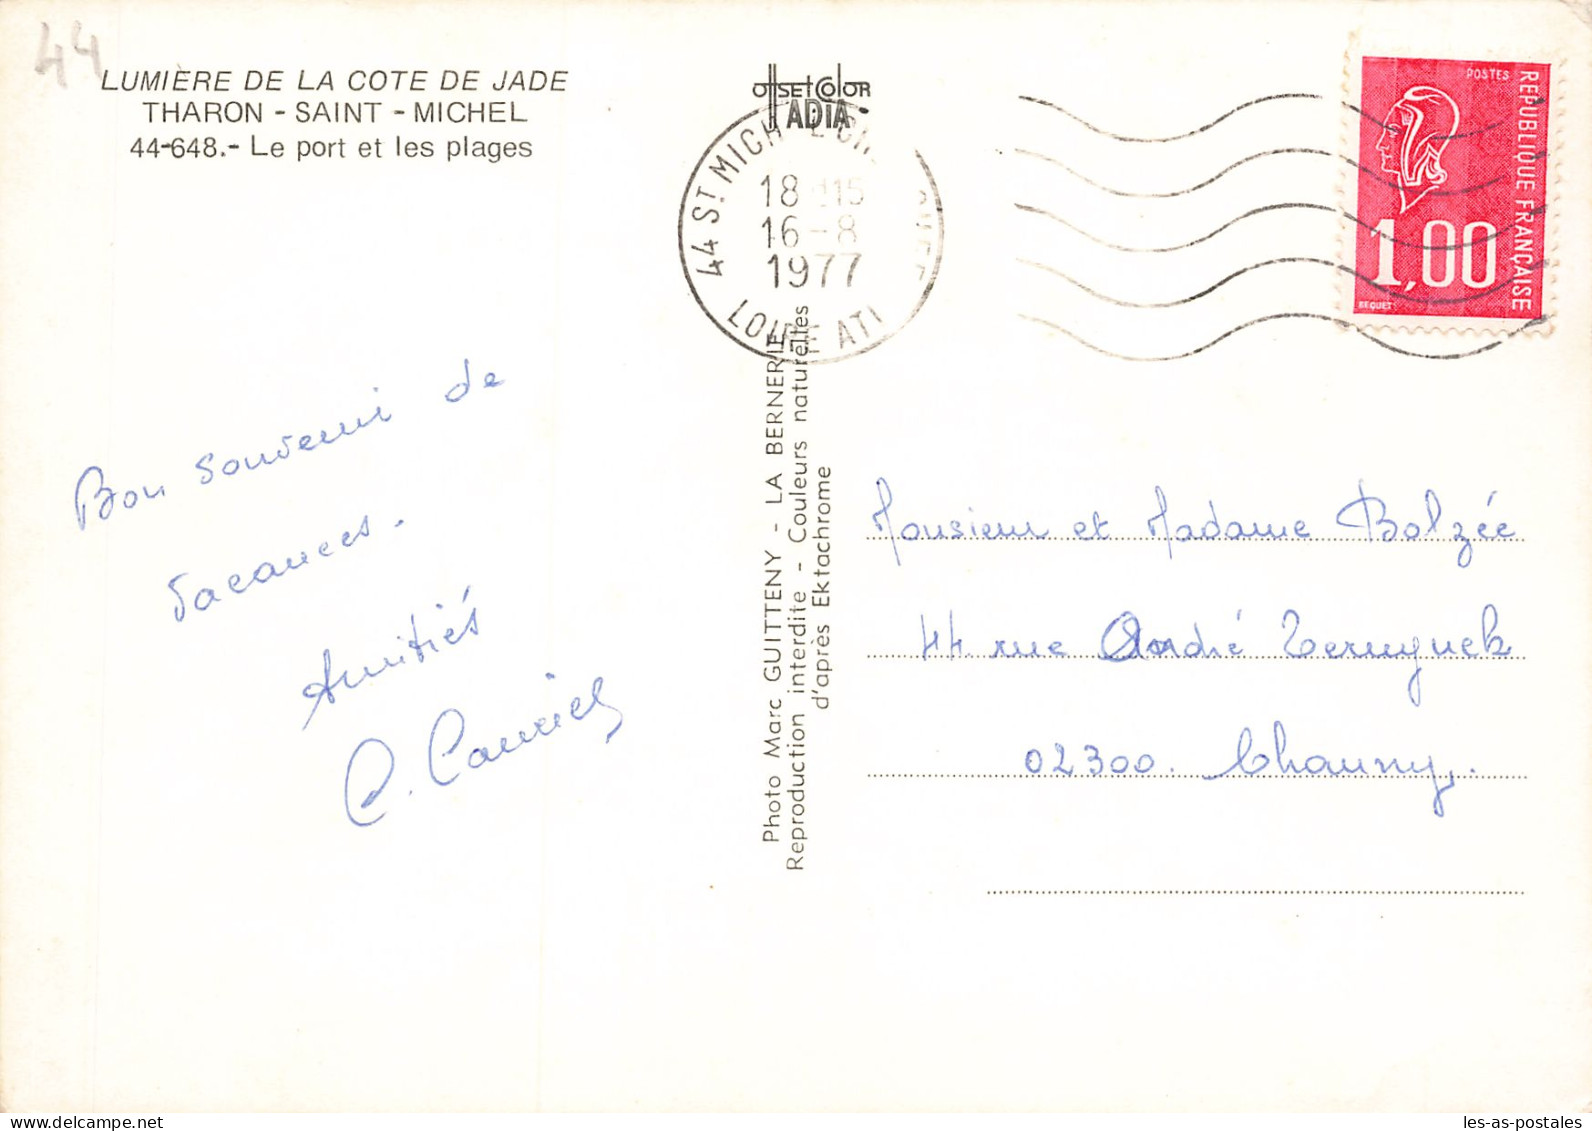 44
LUMIÈRE DE LA COTE DE JADE
THARON - SAINT - MICHEL
44-648.- Le port et les plages
offset color
ADIA
44 ST MICH
18 H15
16-8
1977
LOIRE ATL
POSTES
REPUBLIQUE FRANÇAISE
1,00
BEQUET
Bon souvenir de
vacances.
Amitiés
Photo Marc GUITTENY - LA BERNERIE
Reproduction interdite - Couleurs naturelles
d'après Ektachrome
Monsieur et Madame Bolzée
44 rue André Ternynck
02300. Chauny.
les-as-postales